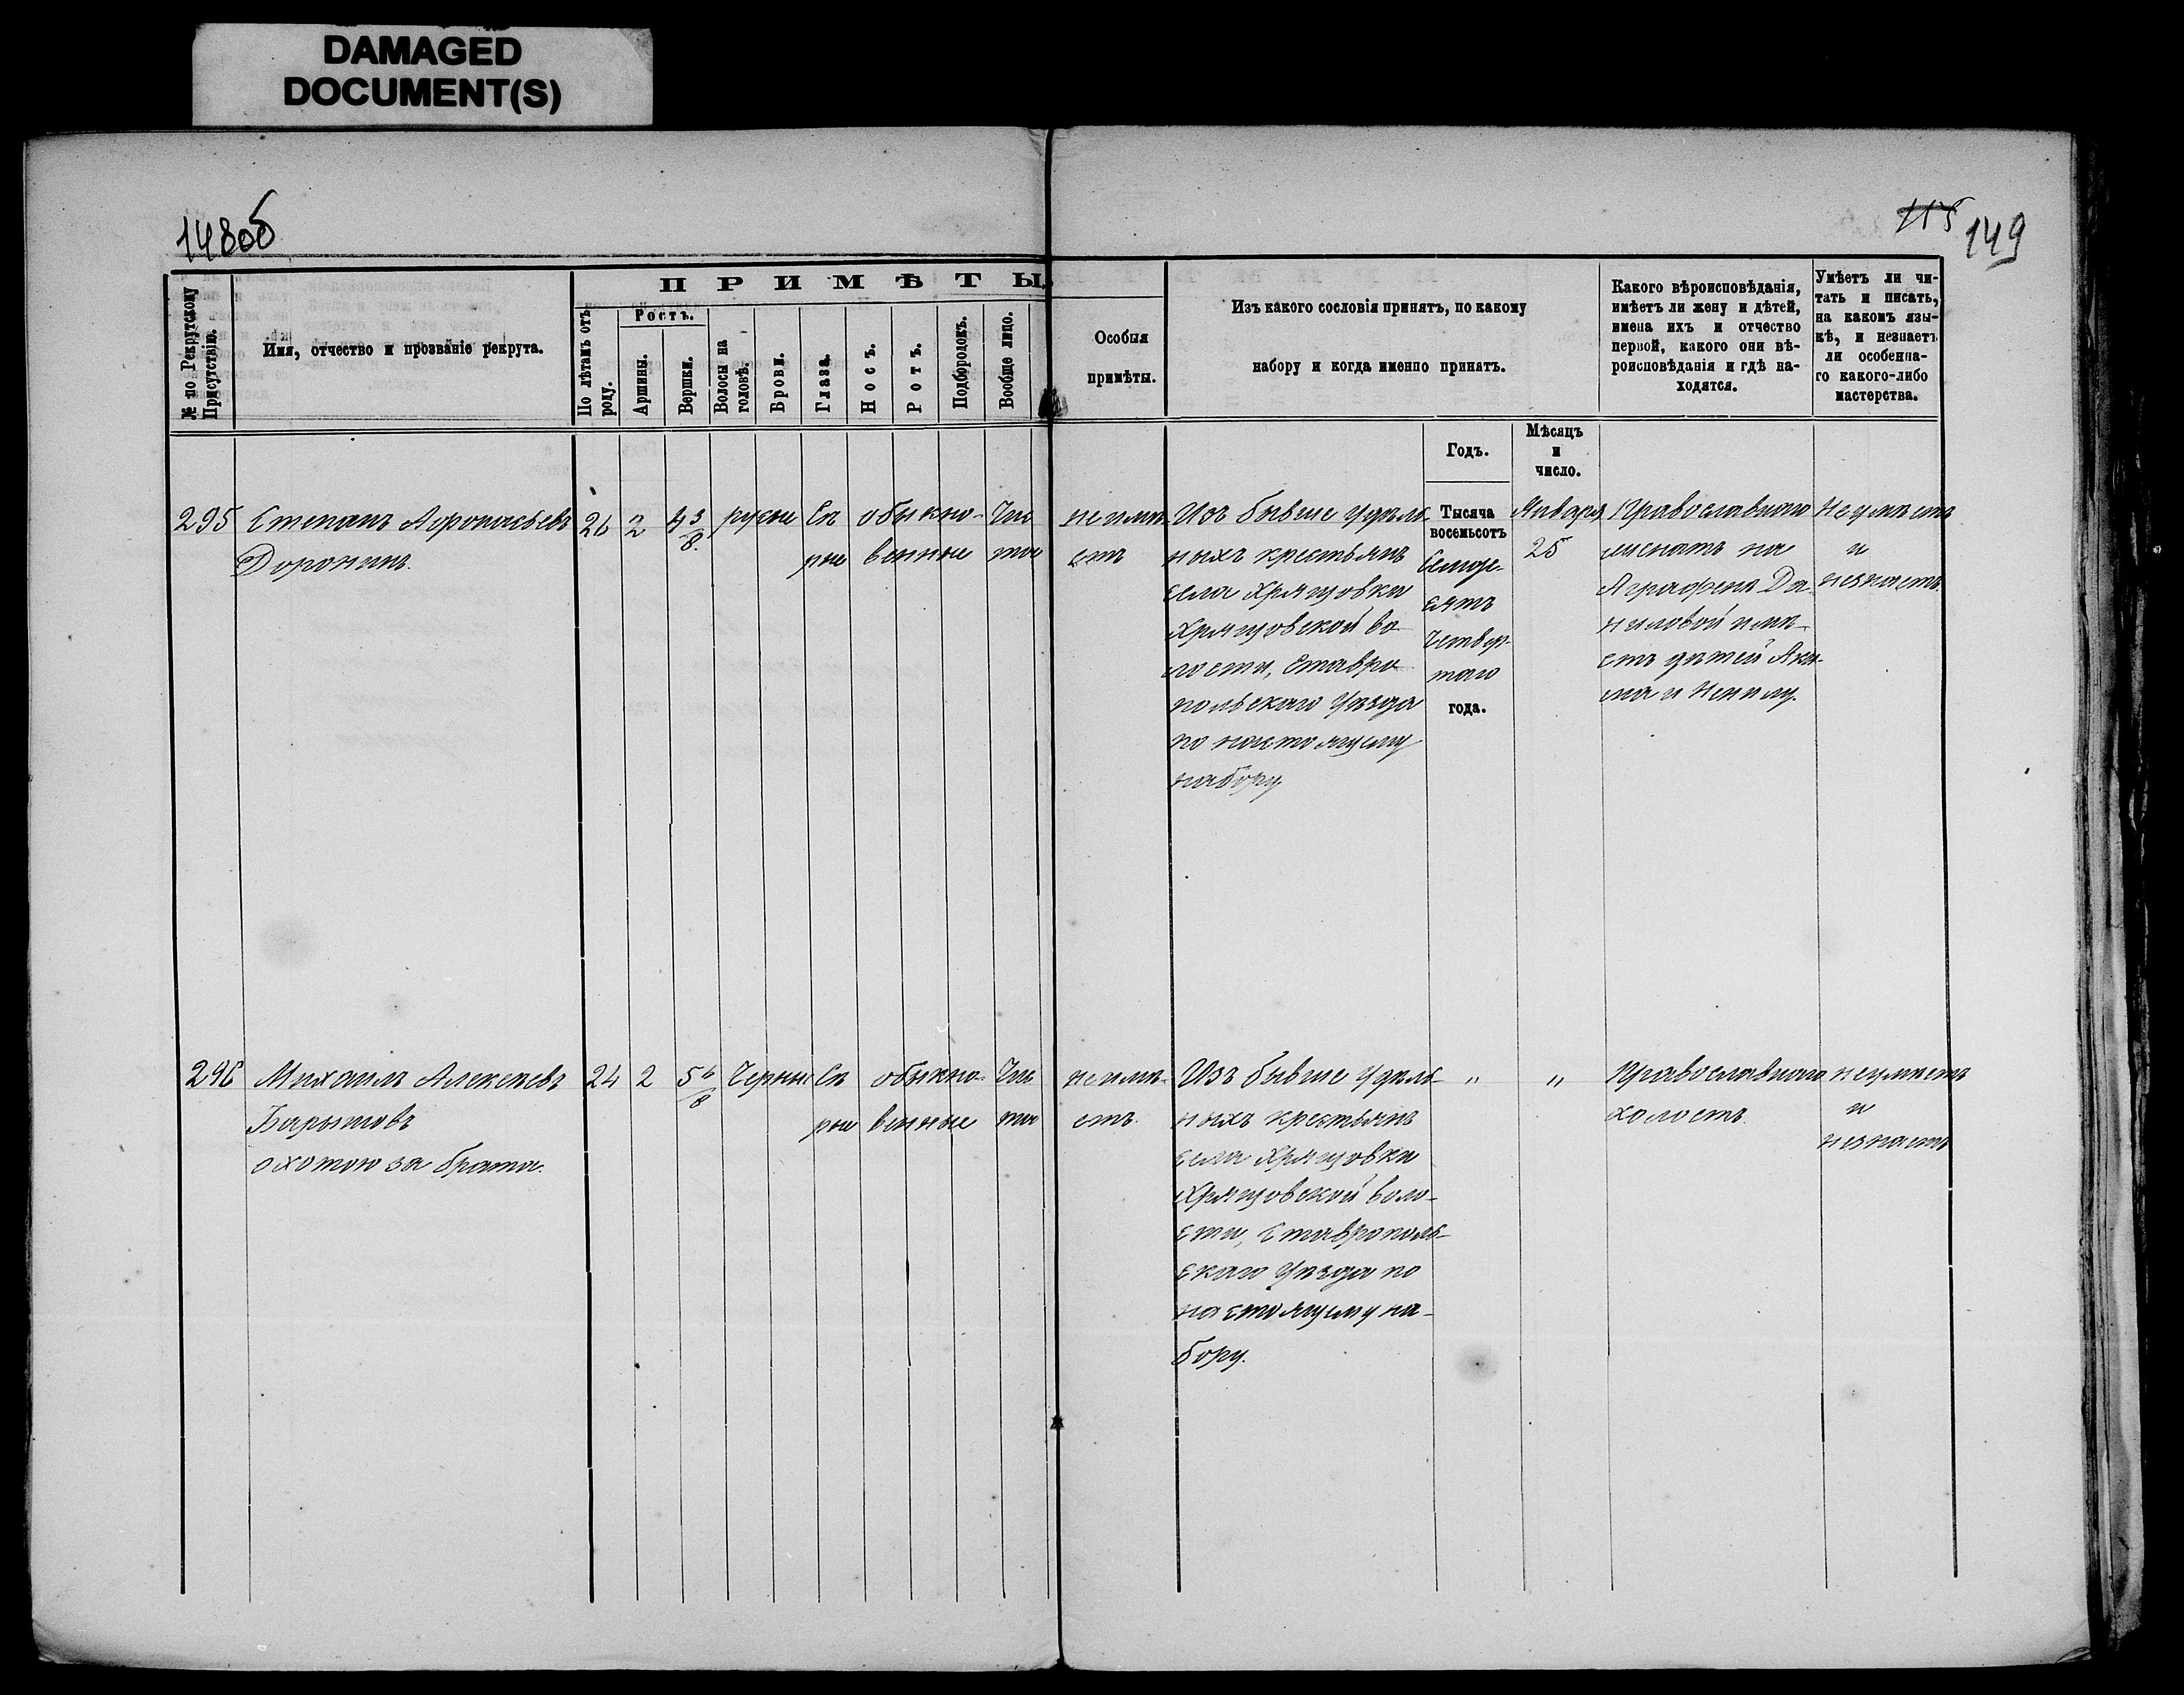 DAMAGED
DOCUMENT(S)
148об
115
149
№ по Рекрутскому Присутствію.
Имя, отчество и прозваніе рекрута.
ПРИМѢТЫ.
По лѣтамъ отъ роду.
Ростъ.
Аршины.
Вершки.
Волосы на головѣ.
Брови.
Глаза.
Носъ.
Ротъ.
Подбородокъ.
Вообще лицо.
Особыя
примѣты.
Изъ какого сословія принятъ, по какому
набору и когда именно принятъ.
Какого вѣроисповѣданія,
имѣетъ ли жену и дѣтей,
имена ихъ и отчество
первой, какого они вѣ-
роисповѣданія и гдѣ на-
ходятся.
Умѣетъ ли чи-
тать и писать,
на какомъ язы-
кѣ, и незнаетъ
ли особенна-
го какого-либо
мастерства.
Годъ.
Мѣсяцъ
и
число.
295
Степанъ Афонасьевъ
Доронинъ.
26
2
4 3/8.
русые
Сѣ
рые
обыкно-
венные
Чис
тое
неимѣ-
етъ
Изъ бывше удѣль-
ныхъ крестьянъ
села Хрящовки
Хрящовской во
лости, Ставро
польскаго Уѣзда
по настоящему
набору
Тысяча
восемьсотъ
Семде-
сятъ
Четвер-
таго
года.
Января
25
Православнаго
женатъ на
Аграфенѣ Да-
ниловой имѣ-
етъ дѣтей
и
Неумѣетъ
и
незнаетъ.
296
Михаилъ Алексѣевъ
Барышовъ
охотою за брата.
24
2
5 6/8
Черные
Сѣ
рые
обыкно-
венные
Чис
тое
неимѣ-
етъ.
Изъ бывше удѣль-
ныхъ крестьянъ
села Хрящовки
Хрящовской воло-
сти, Ставрополь-
скаго Уѣзда по
настоящему на-
бору.
"
"
Православнаго
холостъ.
неумѣетъ
и
незнаетъ